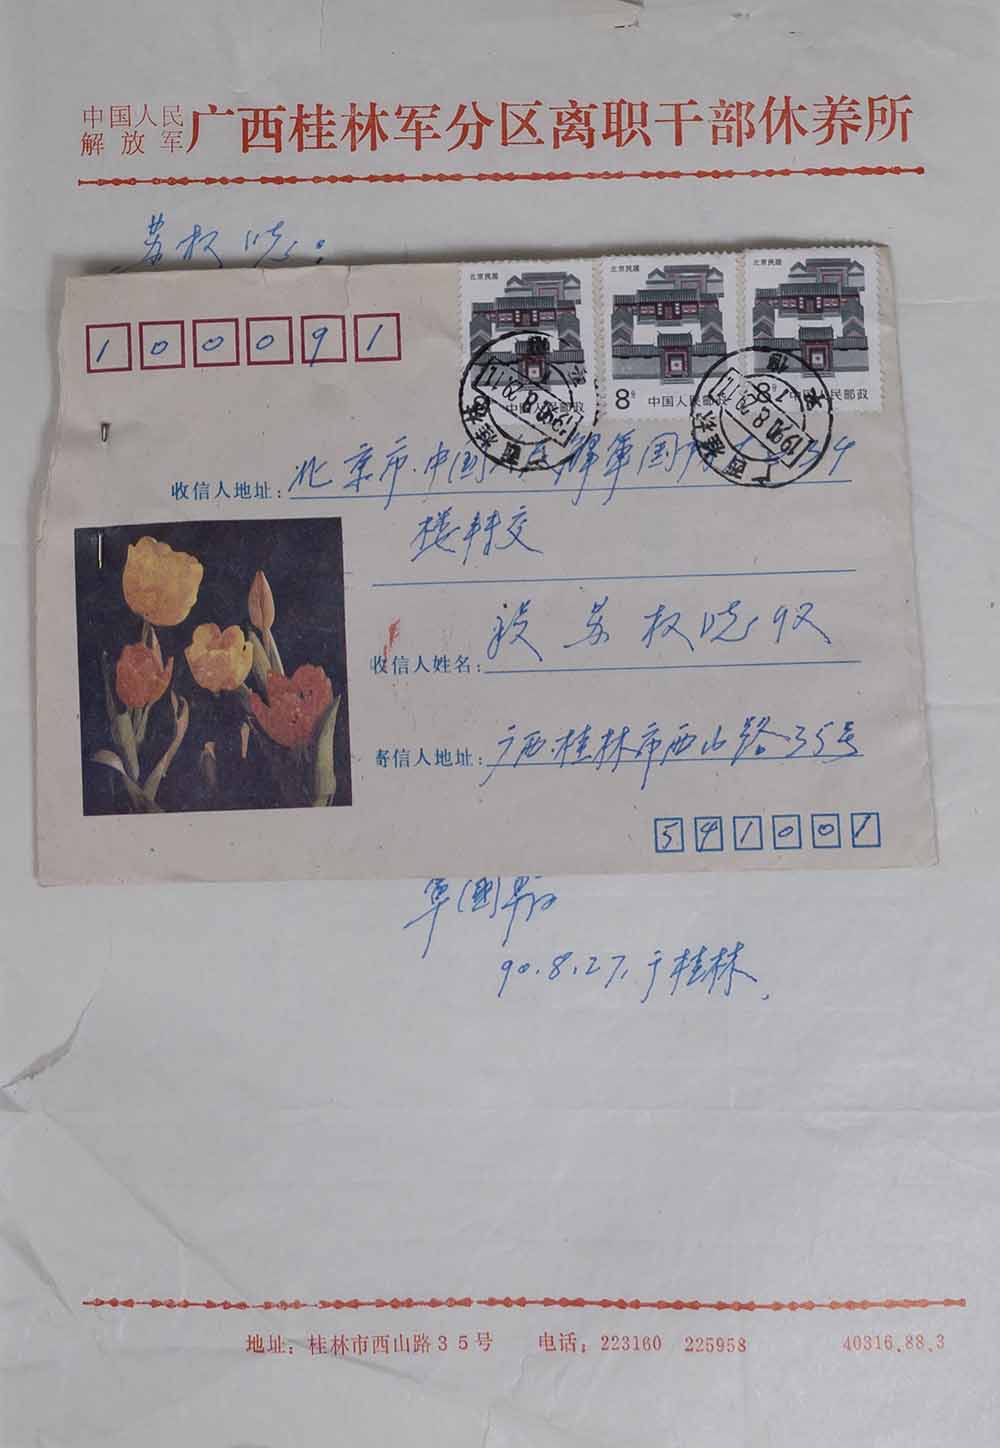 中国人民
解放军
广西桂林军分区离职干部休养所
苏权
北京民居
北京民居
北京民居
中国人民邮政
8分 中国人民邮政
8分 中国人民邮政
广西桂林
1990.8.29.11
广西桂林
1990.8.29.11
100091
收信人地址: 北京市.中国 军国
楼转交
收信人姓名: 段苏权 收
寄信人地址: 广西.桂林市西山路35号
541001
90.8.27.于桂林.
地址: 桂林市西山路35号 电话: 223160 225958 40316.88.3